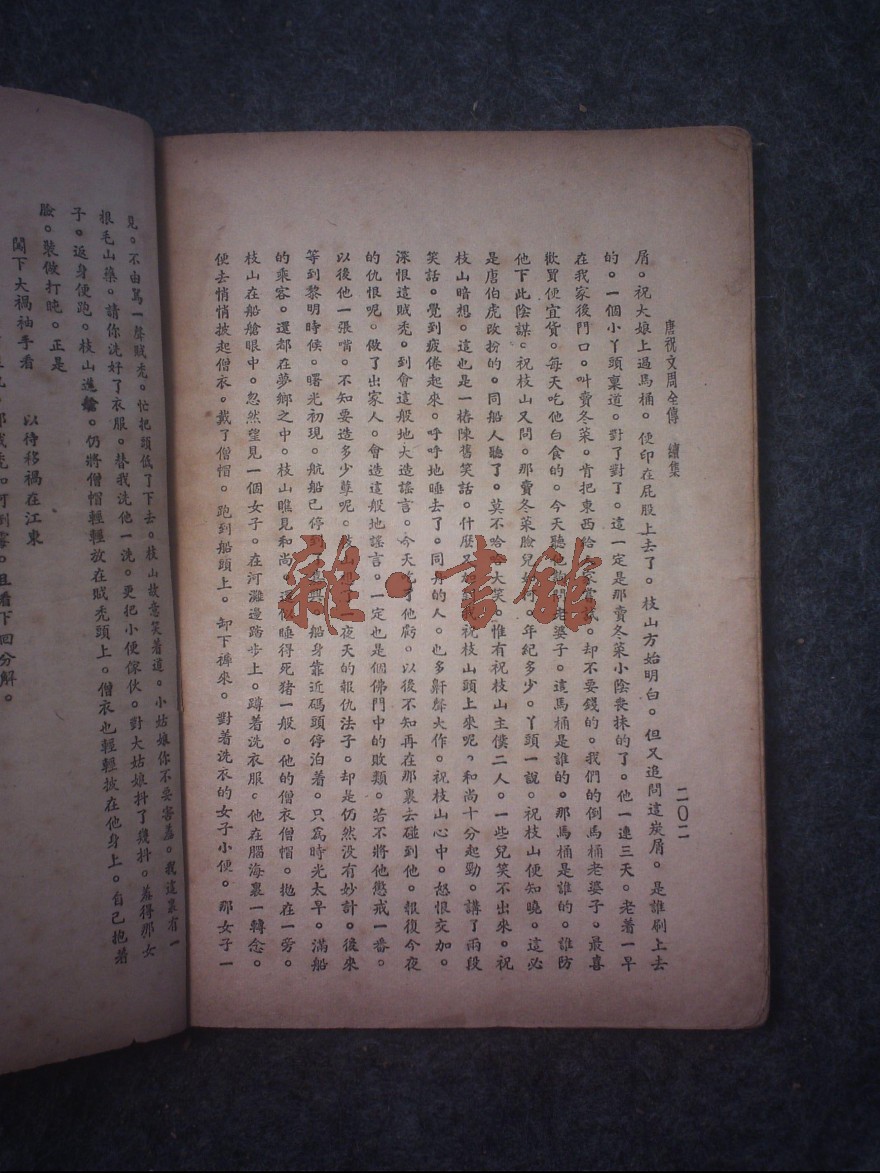 唐祝文周全傳　續集
二〇二
屑。祝大娘上過馬桶。便印在屁股上去了。枝山方始明白。但又追問這炭屑。是誰刷上去
的。一個小丫頭稟道。對了對了。這一定是那賣冬菜小陰喪抹的了。他一連三天。老着一早
在我家後門口。叫賣冬菜。肯把東西給 家嘗試。却不要錢的。我們的倒馬桶老婆子。最喜
歡買便宜貨。每天吃他白食的。今天聽他 問老婆子。這馬桶是誰的。那馬桶是誰的。誰防
他下此陰謀。祝枝山又問。那賣冬菜臉兒 年紀多少。丫頭一說。祝枝山便知曉。這必
是唐伯虎改扮的。同船人聽了。莫不哈哈大笑。惟有祝枝山主僕二人。一些兒笑不出來。祝
枝山暗想。這也是一樁陳舊笑話。什麼又 祝枝山頭上來呢。和尚十分起勁。講了兩段
笑話。覺到疲倦起來。呼呼地睡去了。同舟的人。也多鼾聲大作。祝枝山心中。怒恨交加。
深恨這賊禿。到會這般地大造謠言。今天吃了他虧。以後不知再在那裏去碰到他。報復今夜
的仇恨呢。做了出家人。會造這般地謠言。一定也是個佛門中的敗類。若不將他懲戒一番。
以後他一張嘴。不知要造多少孽呢。枝山想了一夜天的報仇法子。却是仍然没有妙計。後來
等到黎明時候。曙光初現。航船已停到 興。船身靠近碼頭停泊着。只爲時光太早。滿船
的乘客。還都在夢鄉之中。枝山瞧見和尚。還似睡得死猪一般。他的僧衣僧帽。抛在一旁。
枝山在船艙眼中。忽然望見一個女子。在河灘邊踏步上。蹲着洗衣服。他在腦海裏一轉念。
便去悄悄披起僧衣。戴了僧帽。跑到船頭上。卸下褲來。對着洗衣的女子小便。那女子一
見。不由罵一聲賊禿。忙把頭低了下去。枝山故意笑着道。小姑娘你不要害羞。我這裏有一
根毛山藥。請你洗好了衣服。替我洗他一洗。更把小便傢伙。對大姑娘抖了幾抖。羞得那女
子。返身便跑。枝山進艙。仍將僧帽輕輕放在賊禿頭上。僧衣也輕輕披在他身上。自己抱着
臉。裝做打盹。正是
闖下大禍袖手看　以待移禍在江東
且看下回分解。
雜·書館